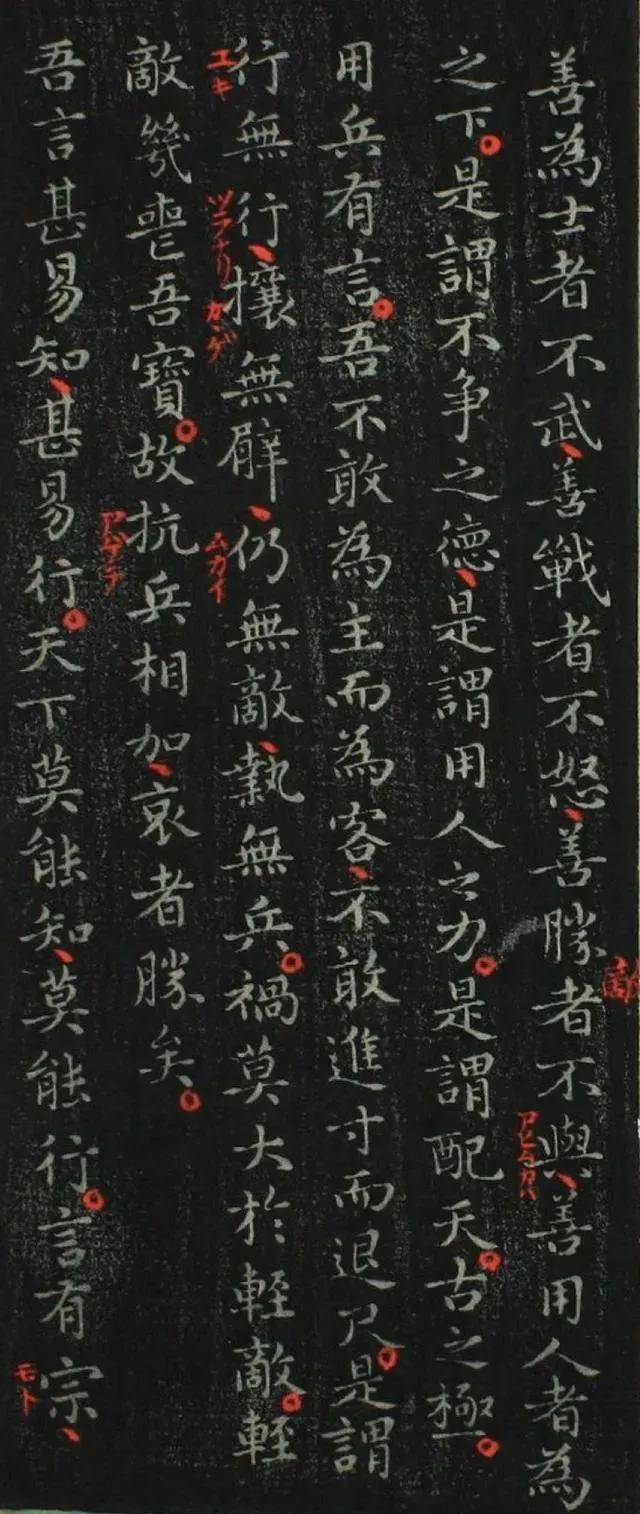 善為士者不武、善戰者不怒、善勝者不與、善用人者為
之下。是謂不争之德、是謂用人之力。是謂配天。古之極。
用兵有言。吾不敢為主而為客、不敢進寸而退尺。是謂
行無行、攘無臂、仍無敵、執無兵。禍莫大於輕敵。輕
敵幾喪吾寶。故抗兵相加、哀者勝矣。
吾言甚易知、甚易行。天下莫能知、莫能行。言有宗、
敵
アヒタカハ
ユキ
ツラナリ
カゝゲ
ムカイ
アゲテ
モト